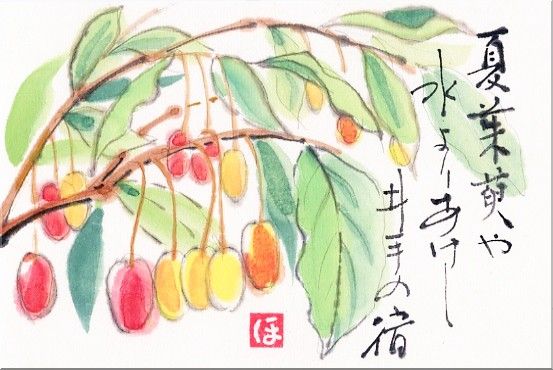 夏茱萸や
水よりあけし
井手の宿
ほ